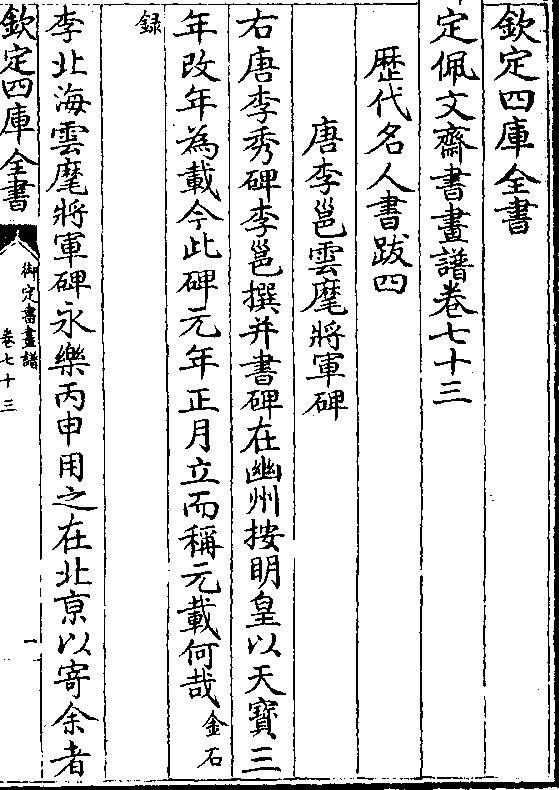 欽定四庫全書
定佩文齋書畫譜卷七十三
歴代名人書跋四
唐李邕雲麾將軍碑
右唐李秀碑李邕撰并書碑在幽州按明皇以天寳三
年改年為載今此碑元年正月立而稱元載何哉金石
録
李北海雲麾將軍碑永樂丙申用之在北京以寄余者
欽定四庫全書
御定書畫譜
卷七十三
一